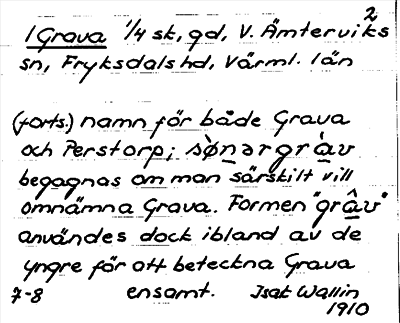 2
1 Grava 1/4 sk, gd, V. Ämterviks
sn, Fryksdals hd, Värml. län
(forts.) namn för både Grava
och Perstorp; sø̀nərgràv
begagnas om man särskilt vill
omnämna Grava. Formen "grâv"
användes dock ibland av de
yngre för att beteckna Grava
7-8 ensamt. Isak Wallin
1910